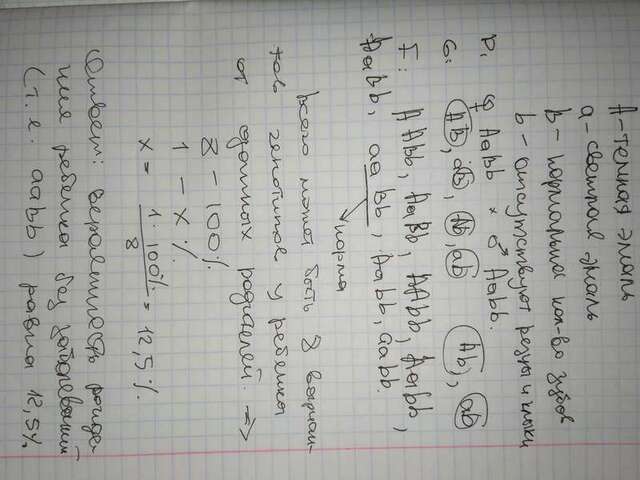 А-темная эмаль
а-светлая эмаль
В- нормальное кол-во зубов
b- отсутствуют резцы и клыки
P: ♀ AaBb × ♂ Aabb.
G: AB, aB, Ab, ab Ab, ab
F: AABb, AaBb, AAbb, Aabb,
AaBb, aaBb, Aabb, aabb.
норма
Всего может быть 8 вариан-
тов генотипов у ребенка
от данных родителей. =>
8 - 100%
1 - x%
x = 1·100% / 8 = 12,5%.
Ответ: вероятность рожде-
ния ребенка без заболеваний
(т.е. aaBb) равна 12,5%